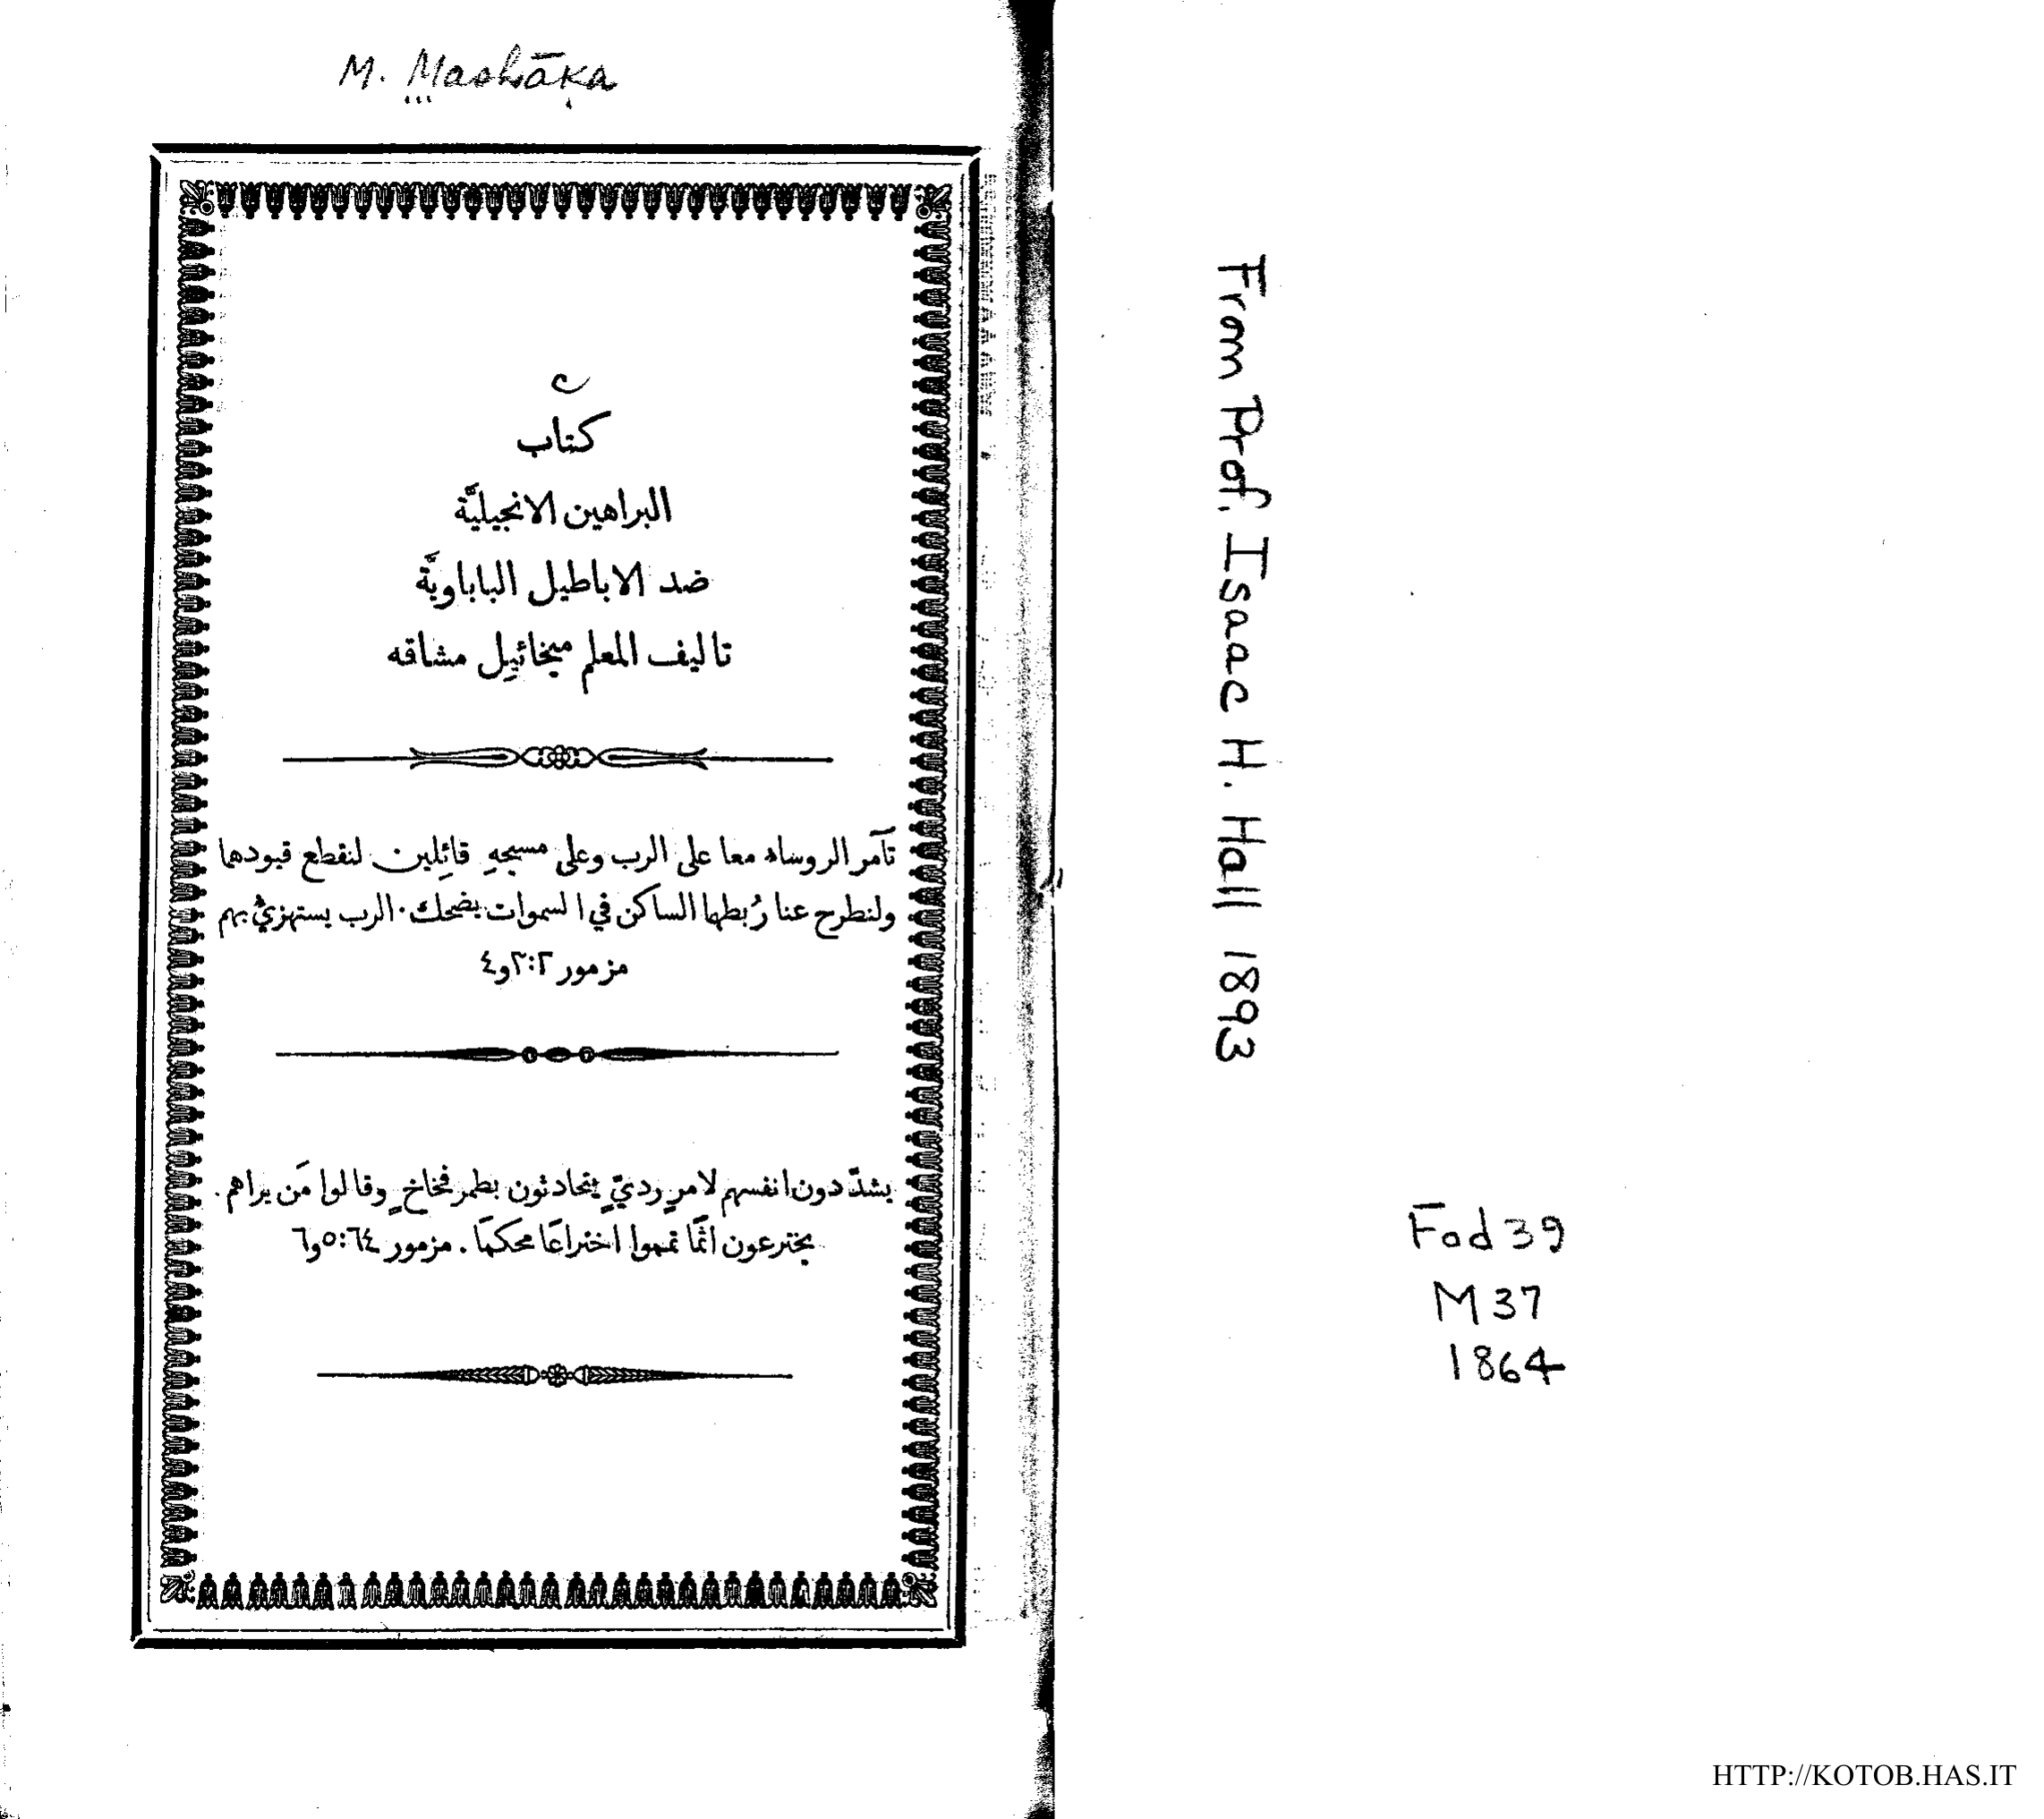 M. Mashāḳa
كتاب
البراهين الانجيليَّة
ضد الاباطيل الباباويَّة
تاليف المعلم ميخائيل مشاقه
تآمر الروساء معا على الرب وعلى مسيحهِ قائلين لنقطع قيودها
ولنطرح عنا رُبطها الساكن في السموات يضحك. الرب يستهزئُ بهم
مزمور ٢:٢ و٤
يشدّدون انفسهم لامرٍ رديّ يتحادثون بطمر فخاخٍ وقالوا مَن يراهم.
يخترعون اثمًا تمموا اختراعًا محكمًا. مزمور ٦٤:٥ و٦
From Prof. Isaac H. Hall 1893
Fod39
M37
1864
HTTP://KOTOB.HAS.IT